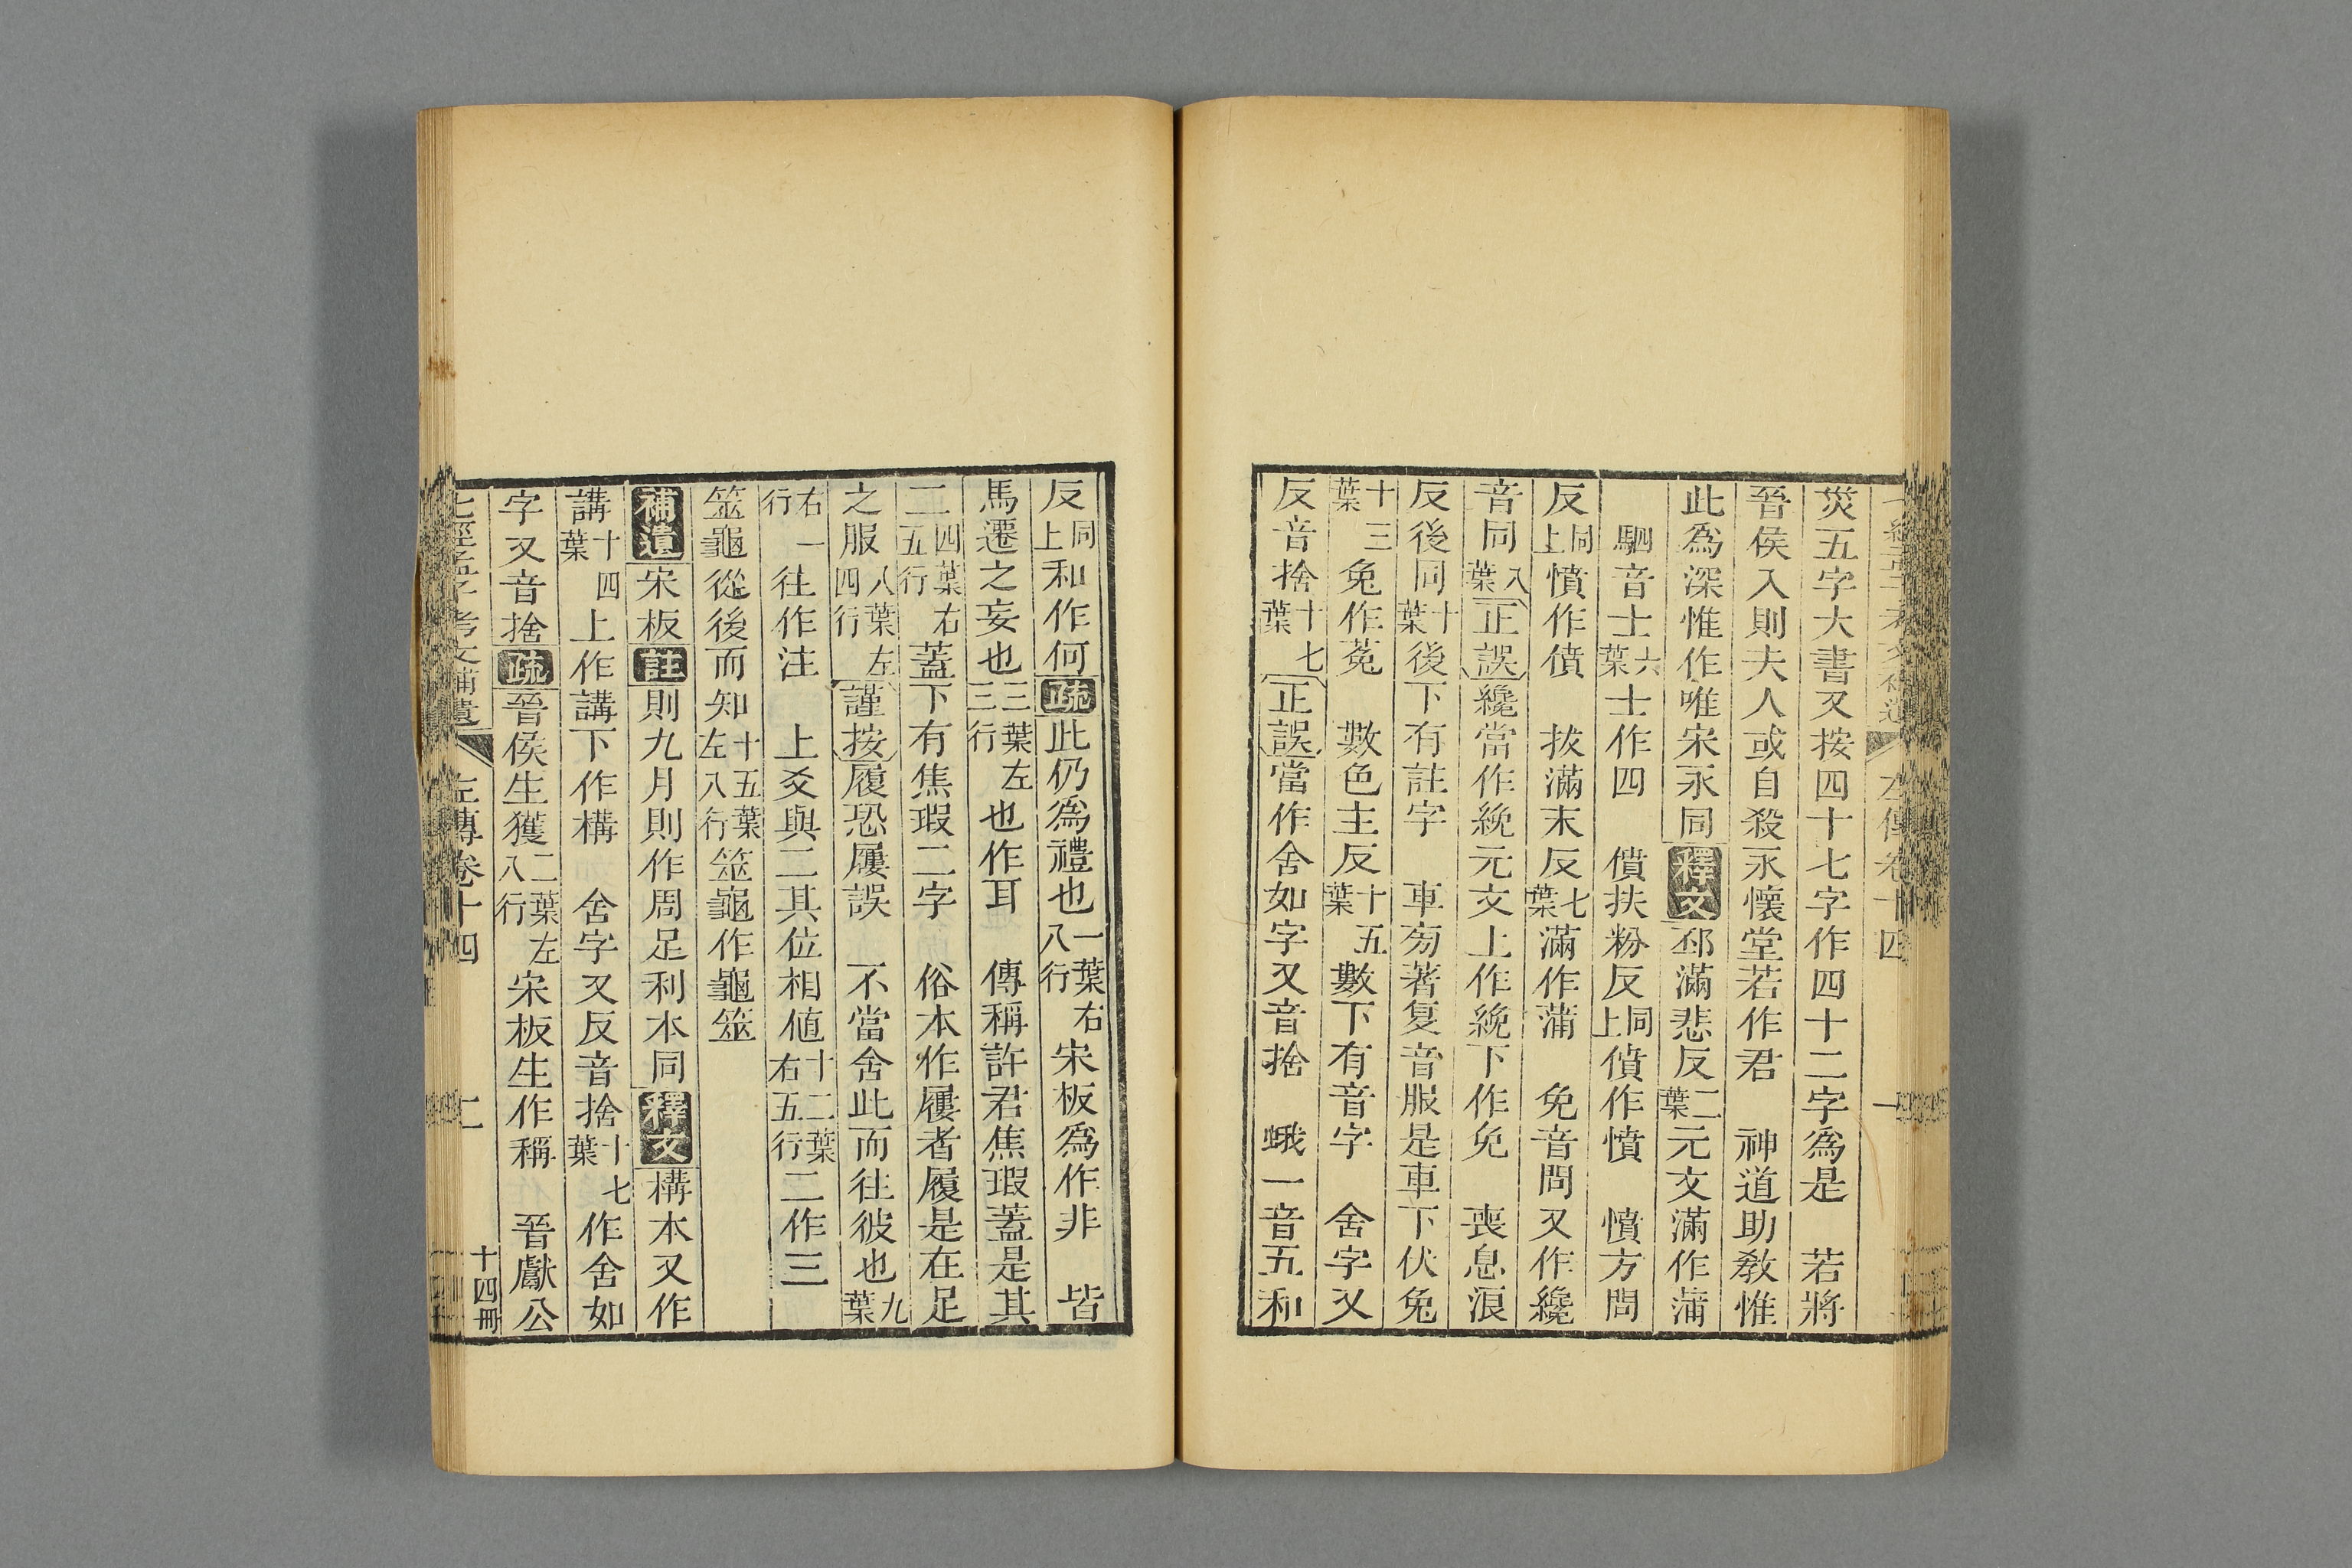 災五字大書又按四十七字作四十二字爲是　若將
晉侯入則夫人或自殺永懷堂若作君　神道助教惟
此爲深惟作唯宋永同釋文邳滿悲反二葉元文滿作蒲
駟音士六葉士作四　僨扶粉反同上僨作憤　憤方問
反同上憤作僨　拔滿末反七葉滿作蒲　免音問又作纔
音同八葉正誤纔當作絻元文上作絻下作免　喪息浪
反後同十葉後下有註字　車旁著复音服是車下伏兔
十三葉兔作菟　數色主反十五葉數下有音字　舍字又
反音捨十七葉正誤當作舍如字又音捨　蛾一音五和
反同上和作何疏此仍爲禮也一葉右八行宋板爲作非　皆
馬遷之妄也三葉左三行也作耳　傳稱許君焦瑕蓋是其
二四葉右五行蓋下有焦瑕二字　俗本作屨者履是在足
之服八葉左四行謹按履恐屨誤　不當舍此而往彼也九葉
右一行往作注　上爻與二其位相値十二葉右五行二作三
筮龜從後而知十五葉左八行筮龜作龜筮
補遺宋板註則九月則作周足利本同釋文構本又作
講十四葉上作講下作構　舍字又反音捨十七葉作舍如
字又音捨疏晉侯生獲二葉左八行宋板生作稱　晉獻公
左傳卷十四
二
十四冊